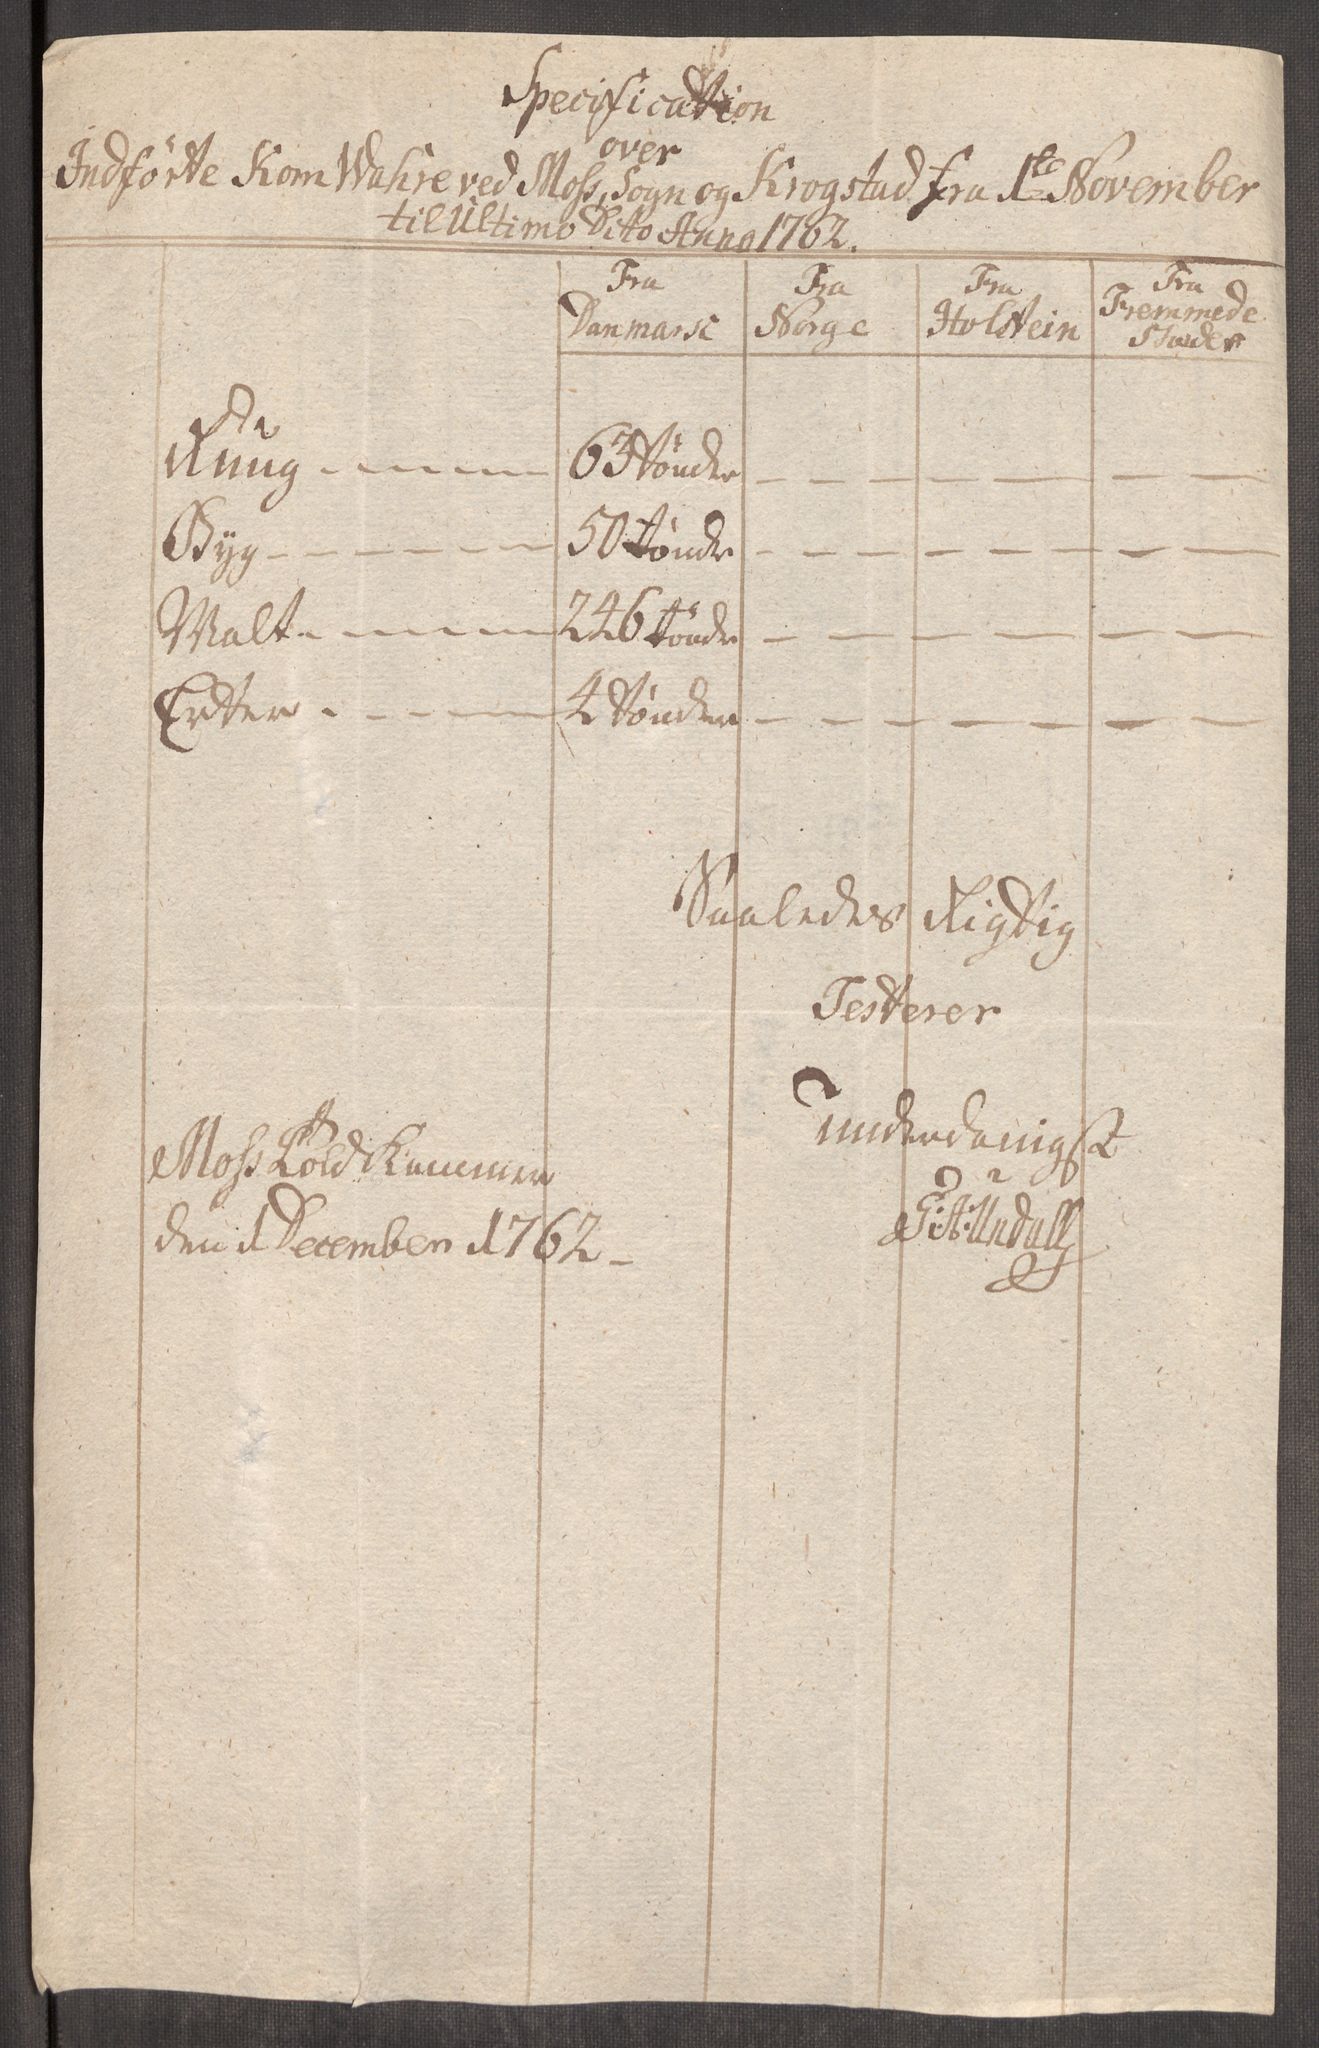 Specification
over
Indførte Korn Wahre ved Moss, Sogn og Krogstad fra 1ste November
til Ultimo Dito Anno 1762.
Fra Danmarc Fra Norge Fra Holstein Fra Fremmede Stæder
Rug - - - - 63 tönder - - - - - -
Byg - - - - 50 tönder - - - - - -
Malt - - - - 246 tönder - - - - - -
Erter - - - - 4 tönder - - - - - -
Saaledes Rigtig
Testerer
underdanigst
Moss Told Kammer
den 1 December 1762